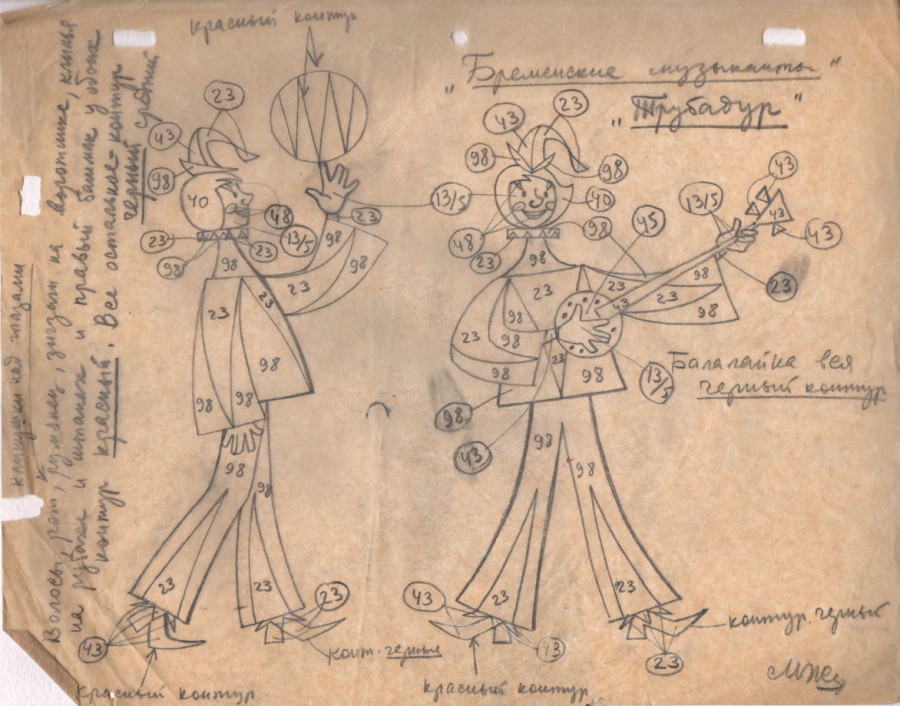 красный контур
„Бременские музыканты“
„Трубадур“
Волосы, рот, румянец, зигзаги на воротнике, клинья
на рубахе и штанах и правый башмак у обоих
контур красный. Все остальное - контур
черный средний
клинушки над глазами
23
43
98
40
48
13/5
23
23
23
98
98
98
23
23
23
98
98
98
98
98
23
23
43
23
конт. черные
красный контур
43
23
98
98
13/5
40
48
23
98
98
45
13/5
43
43
43
23
23
23
43
98
23
98
98
98
23
98
23
98
98
43
13/5
Балалайка вся
черный контур
98
98
23
23
43
43
23
контур. черный
красный контур